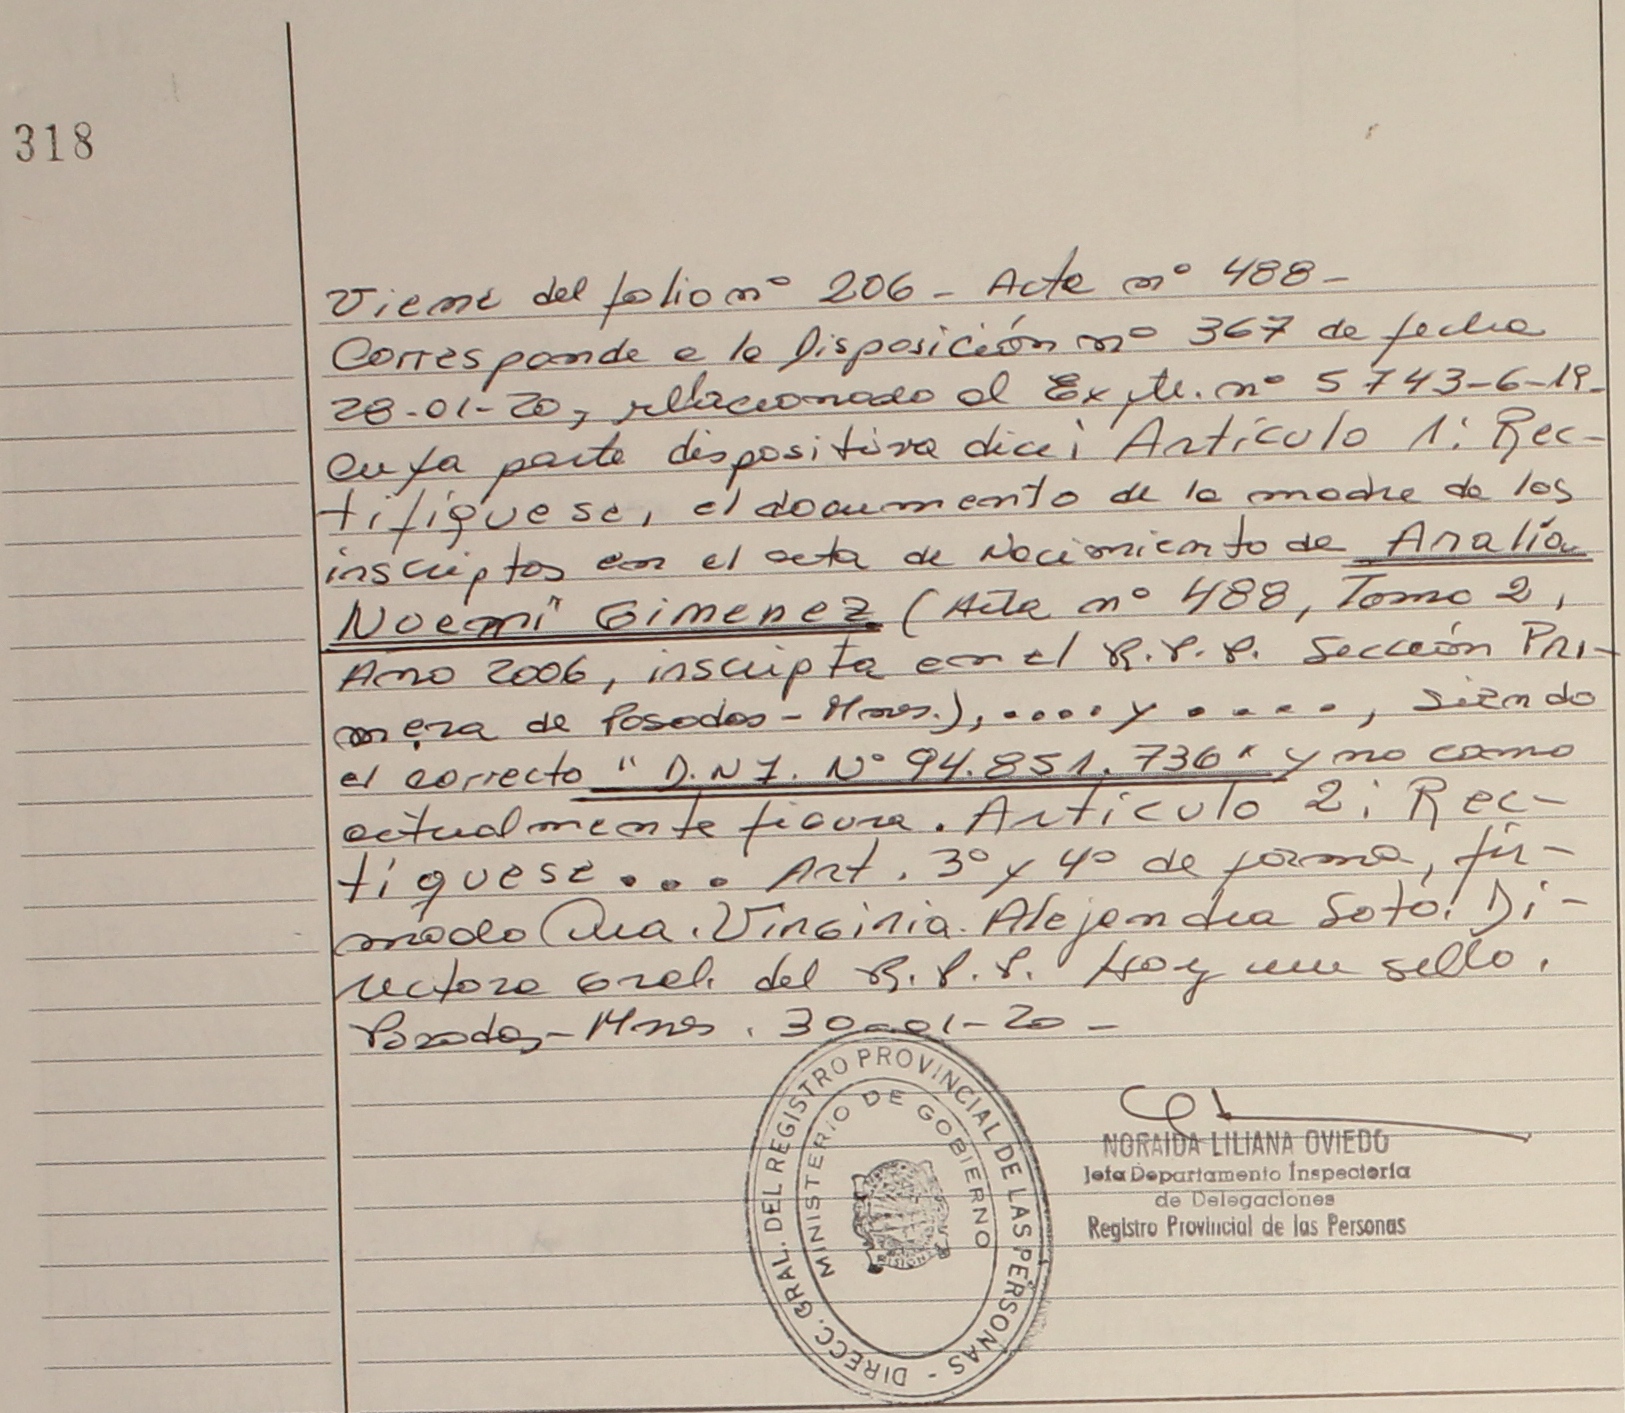 318
Viene del folio nº 206 - Acta nº 488 -
Corresponde a la Disposición nº 367 de fecha
28-01-20, relacionado al Expte. nº 5743-6-19-
cuya parte dispositiva dice: Artículo 1: Rec-
tifiquese, el documento de la madre de los
inscriptos en el acta de Nacimiento de Analía
Noemí Gimenez (Acta nº 488, Tomo 2,
Año 2006, inscripta en el R.P.P. Sección Pri-
mera de Posadas - Mnes.), .... y ....., siendo
el correcto "D.N.I. Nº 94.851.736" y no como
actualmente figura. Artículo 2: Rec-
tiquese... Art. 3º y 4º de forma, fir-
mado Dra. Virginia Alejandra Soto. Di-
rectora Gral. del R.P.P. Hay un sello.
Posadas - Mnes. 30-01-20 -
DIRECC. GRAL. DEL REGISTRO PROVINCIAL DE LAS PERSONAS -
MINISTERIO DE GOBIERNO
MISIONES
NORAIDA LILIANA OVIEDO
Jefa Departamento Inspectoria
de Delegaciones
Registro Provincial de las Personas